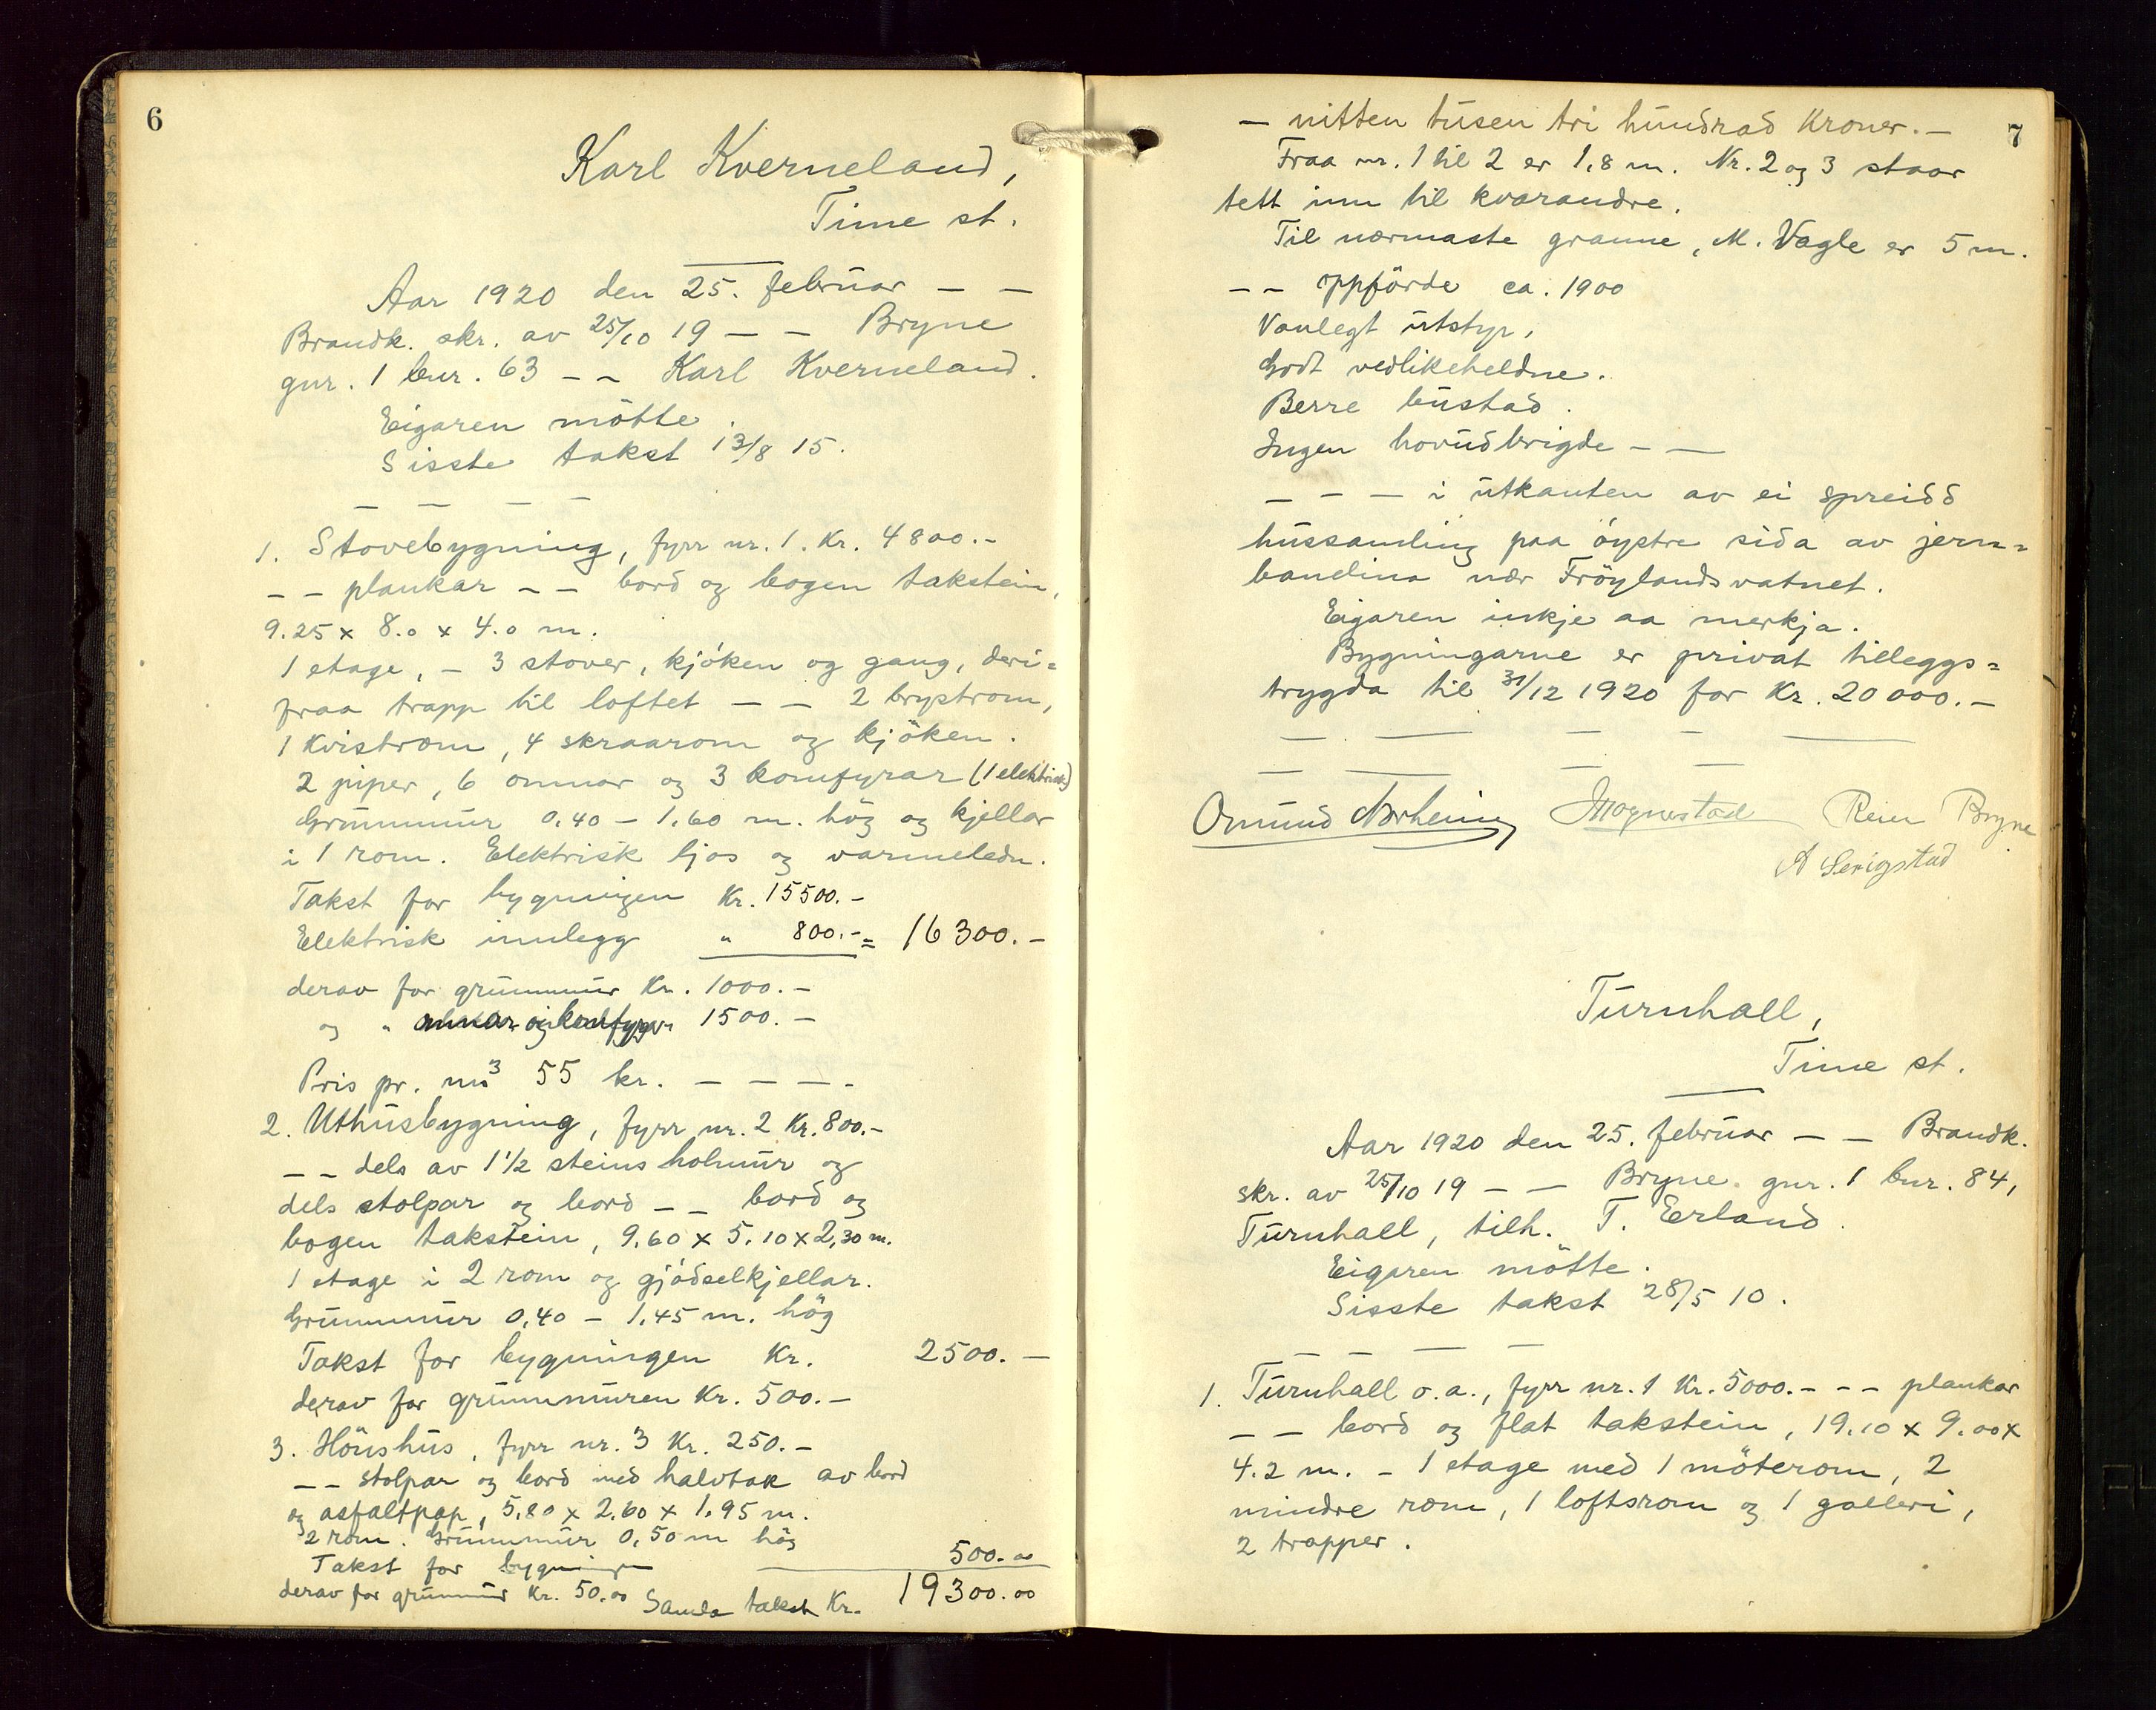 6
Karl Kverneland,
Time st.
Aar 1920 den 25. februar — —
Brandk. skr. av 25/10 19 — — Bryne
gnr. 1 bnr. 63 — — Karl Kverneland.
Eigaren mötte.
Sisste takst 13/8 15.
— — — —
1. Stovebygning, fyrr nr. 1. Kr. 4800.-
— — plankar — — bord og bogen takstein,
9.25 x 8.0 x 4.0 m.
1 etage, — 3 stover, kjöken og gang, deri=
fraa trapp til loftet — — 2 brystrom,
1 kvistrom, 4 skraarom og kjöken.
2 piper, 6 omnar og 3 komfyrar (1 elektrisk)
Grunnmur 0.40 — 1.60 m. hög og kjellar
i 1 rom. Elektrisk ljos og varmeledn.
Takst for bygningen Kr. 15500.-
Elektrisk innlegg " 800.- = 16300.-
derav for grunnmur Kr. 1000.-
og " omnar og komfyrar 1500.-
Pris pr. m³ 55 kr. — — — -
2. Uthusbygning, fyrr nr. 2 Kr. 800.-
— — dels av 1½ steins holmur og
dels stolpar og bord — — bord og
bogen takstein, 9.60 x 5.10 x 2,30 m.
1 etage i 2 rom og gjödselkjellar.
Grunnmur 0,40 — 1,45 m. hög
Takst for bygningen Kr. 2500.—
derav for grunnmuren Kr. 500.-
3. Hönshus, fyrr nr. 3 Kr. 250.-
— — stolpar og bord med halvtak av bord
og asfaltpap, 5,80 x 2,60 x 1,95 m.
2 rom. Grunnmur 0,50 m hög
Takst for bygningen — 500.00
derav for grunnmur Kr. 50.00 Samla takst Kr. 19300.00
7
— nitten tusen tri hundrad Kroner.—
Fraa nr. 1 til 2 er 1,8 m. Nr. 2 og 3 staar
tett inn til kvarandre.
Til nærmaste granne, M. Vagle er 5 m.
— — oppförde ca. 1900
Vanlegt utstyr,
Godt vedlikeheldne.
Berre bustad.
Ingen hovudbrigde — —
— — — i utkanten av ei spreidd
hussamling paa öystre sida av jern=
banelina nær Fröylandsvatnet.
Eigaren inkje aa merkja.
Bygningarne er privat tilleggs=
trygda til 31/12 1920 for Kr. 20000.—
— — — — —
— — — —
Omund Norheim Mognestad Reier Bryne
A Serigstad
Turnhall,
Time st.
Aar 1920 den 25. februar — — Brandk.
skr. av 25/10 19 — — Bryne. gnr. 1 bnr. 84,
Turnhall, tilh. T. Erland.
Eigaren mötte.
Sisste takst 28/5 10.
— — — —
1. Turnhall o.a., fyrr nr. 1 Kr. 5000.- — — plankar
— — bord og flat takstein, 19.10 x 9.00 x
4.2 m. - 1 etage med 1 möterom, 2
mindre rom, 1 loftsrom og 1 galleri,
2 trapper.